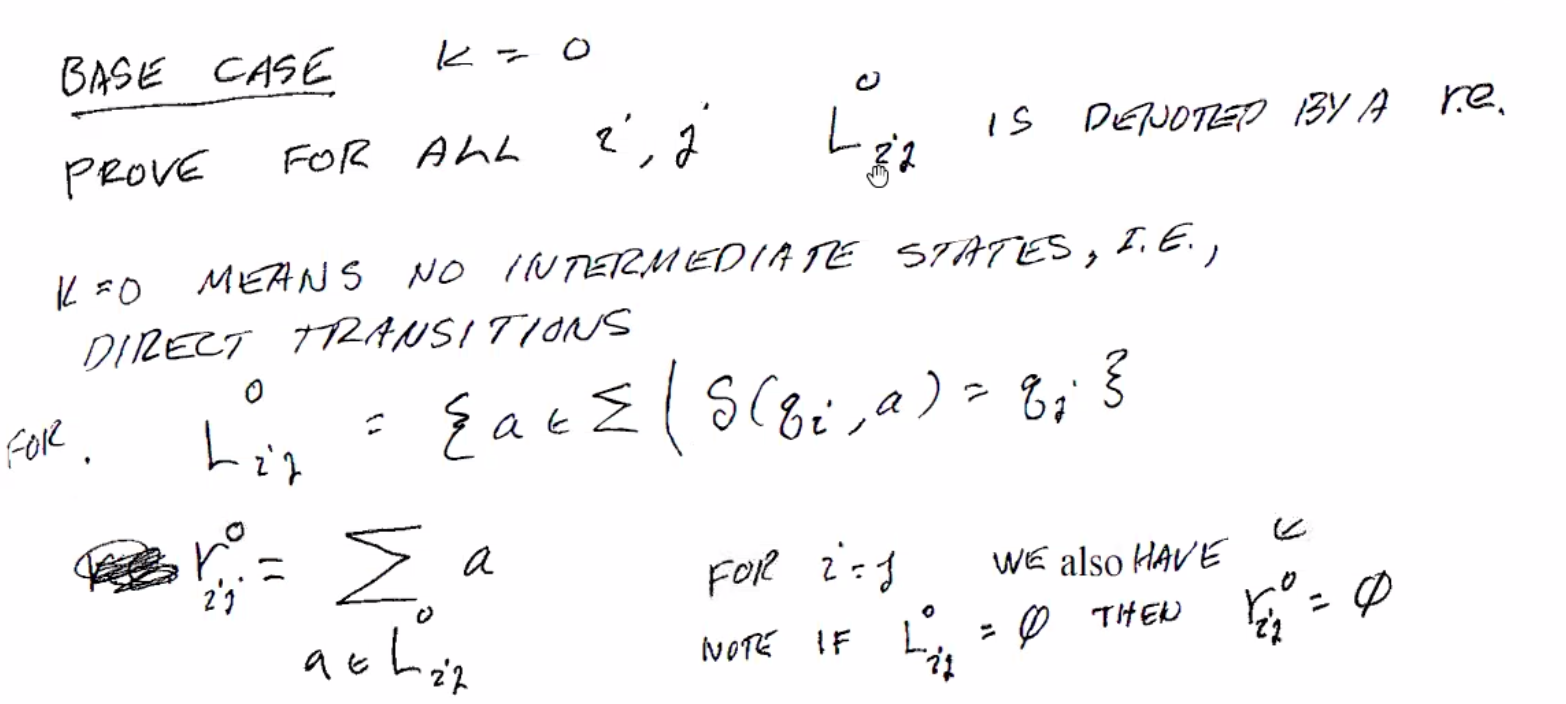 BASE CASE K = 0
PROVE FOR ALL i, j L⁰ᵢⱼ IS DENOTED BY A r.e.
K=0 MEANS NO INTERMEDIATE STATES, I.E.,
DIRECT TRANSITIONS
FOR. L⁰ᵢⱼ = {a ∈ Σ | δ(qᵢ, a) = qⱼ}
r⁰ᵢⱼ = Σ a
a ∈ L⁰ᵢⱼ
FOR i=j WE also HAVE ϵ
NOTE IF L⁰ᵢⱼ = ∅ THEN r⁰ᵢⱼ = ∅